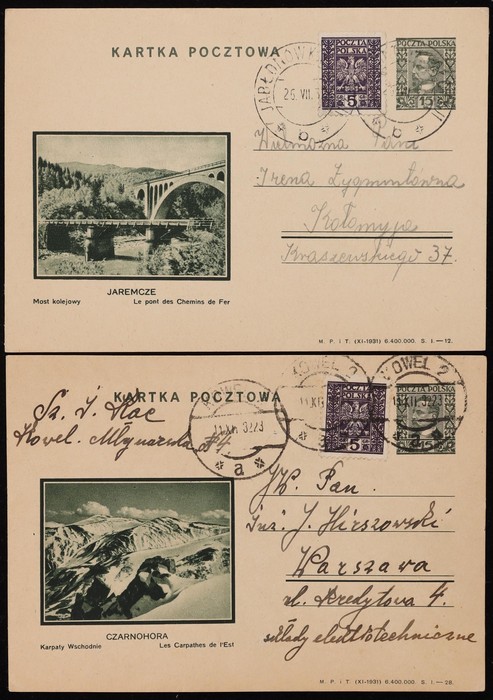 KARTKA POCZTOWA
POCZTA
POLSKA
5 GR 5
POCZTA POLSKA
15
JABŁONÓW
26.VII.3
b
b
Wielmożna Pani
Irena Zygmuntówna
Kołomyja
Kraszewskiego 37.
JAREMCZE
Most kolejowy Le pont des Chemins de Fer
M. P. i T. (XI-1931) 6.400.000. S. I. — 12.
KARTKA POCZTOWA
POCZTA
POLSKA
5 GR 5
POCZTA POLSKA
15
KOWEL 2
KOWEL 2
XII
11 XII 3223
11 XII 3223
a
a
Kowel. Młynarska 4
JW. Pan.
Inż. J. Hirszowski
Warszawa
ul. Kredytowa 4.
składy elektrotechniczne
CZARNOHORA
Karpaty Wschodnie Les Carpathes de l'Est
M. P. i T. (XI-1931) 6.400.000. S. I. — 28.